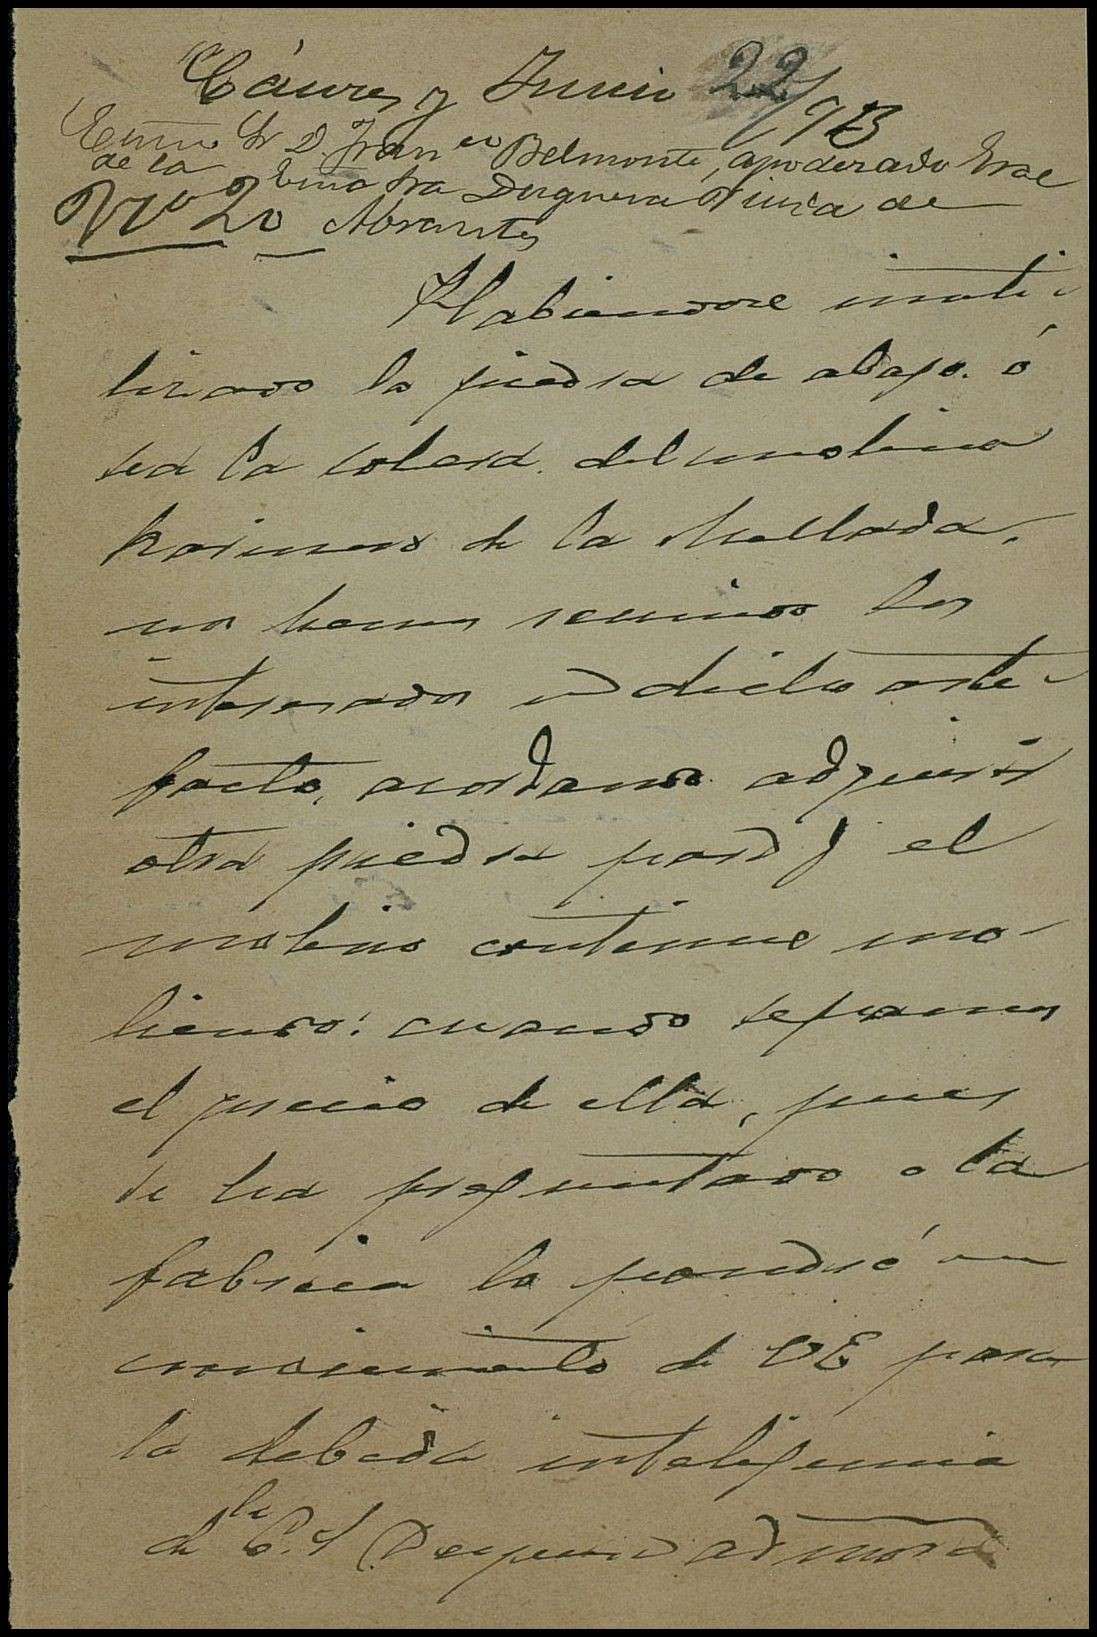 Cáceres y Junio 22/93
Excmo Sr D. Franco Belmonte, apoderado Gral
de la Excma Sra Duquesa Viuda de
No 20 Abrantes
Habiendose inuti-
lizado la piedra de abajo ó
sea la solera del molino
harinero de la Mellada,
nos hemos reunido los
interesados en dicho arte-
facto, acordando adquirir
otra piedra para q el
molino continue mo-
liendo: cuando sepamos
el precio de ella, pues
se ha preguntado a la
fabrica lo pondré en
conocimiento de VE para
la debida inteligencia
de la E. S Duquesa admora